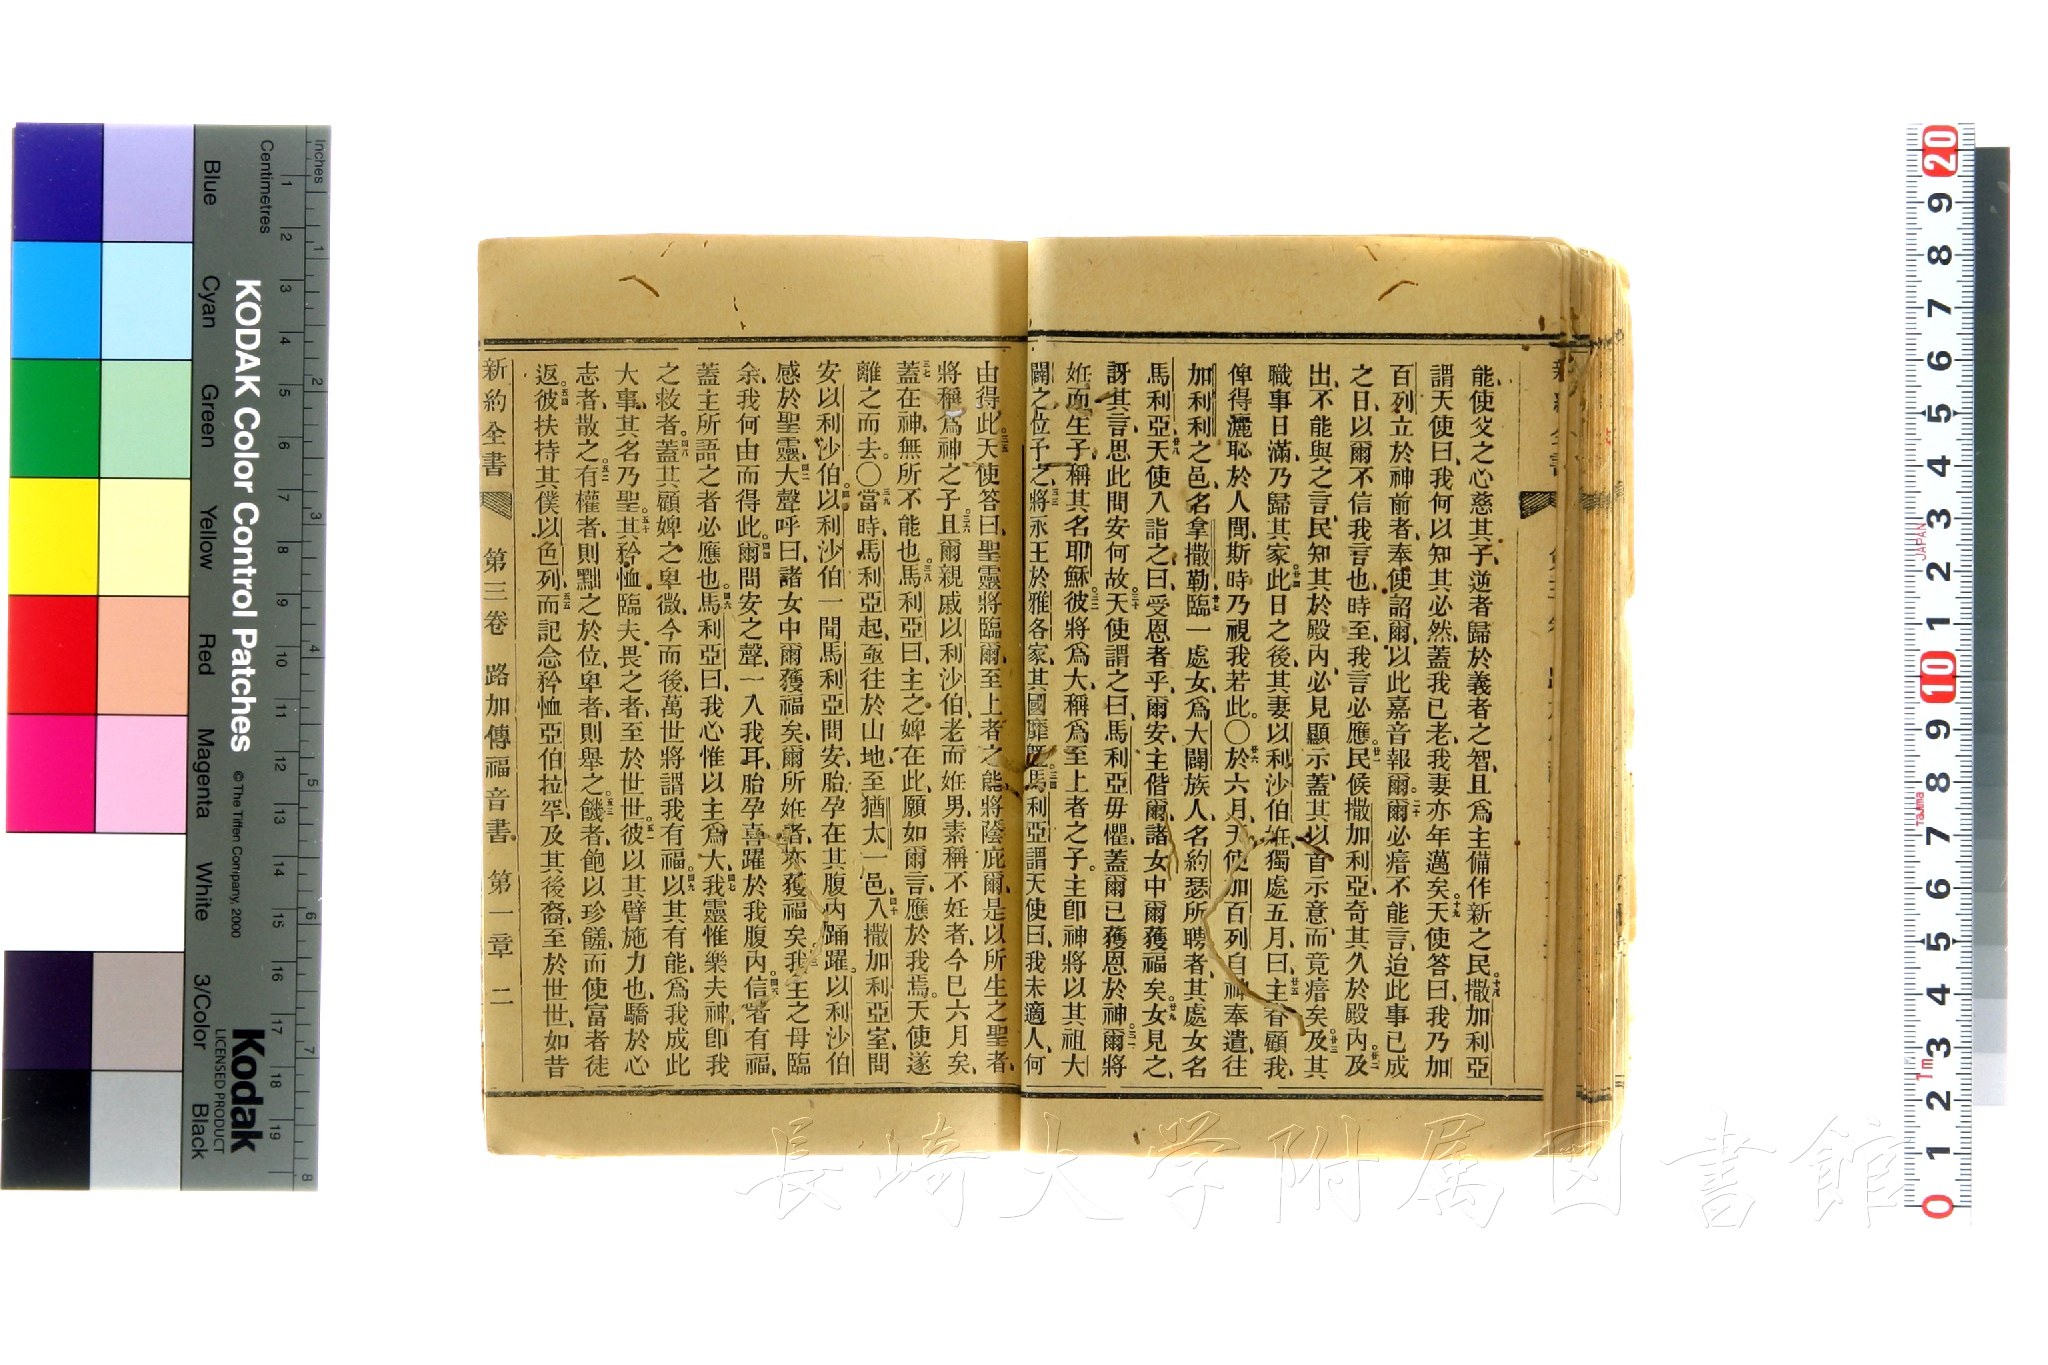 能使父之心慈其子、逆者歸於義者之智、且爲主備作新之民。十八撒加利亞
謂天使曰、我何以知其必然、蓋我已老、我妻亦年邁矣。十九天使答曰、我乃加
百列、立於神前者、奉使詔爾、以此嘉音報爾。二十爾必瘖不能言、迨此事已成
之日、以爾不信我言也、時至、我言必應。廿一民候撒加利亞、奇其久於殿內。廿二及
出、不能與之言、民知其於殿內、必見顯示、蓋其以首示意、而竟瘖矣。廿三及其
職事日滿、乃歸其家。廿四此日之後、其妻以利沙伯妊、獨處五月、曰、廿五主眷顧我、
俾得灑恥於人間、斯時乃視我若此。〇廿六於六月、天使加百列自神奉遣、往
加利利之邑、名拿撒勒、廿七臨一處女、爲大闢族人、名約瑟所聘者、其處女名
馬利亞。廿八天使入詣之曰、受恩者乎、爾安、主偕爾、諸女中爾獲福矣。廿九女見之、
訝其言、思此問安何故。三十天使謂之曰、馬利亞毋懼、蓋爾已獲恩於神。三一爾將
妊而生子、稱其名耶穌。三二彼將爲大、稱爲至上者之子。主卽神將以其祖大
闢之位予之、三三將永王於雅各家、其國靡旣。三四馬利亞謂天使曰、我未適人、何
由得此。三五天使答曰、聖靈將臨爾、至上者之能將蔭庇爾、是以所生之聖者、
將稱爲神之子。三六且爾親戚以利沙伯、老而妊男、素稱不妊者、今已六月矣、
三七蓋在神、無所不能也。三八馬利亞曰、主之婢在此、願如爾言、應於我焉。天使遂
離之而去。〇三九當時、馬利亞起、亟往於山地、至猶太一邑、四十入撒加利亞室、問
安以利沙伯。四一以利沙伯一聞馬利亞問安、胎孕在其腹內踊躍。以利沙伯
感於聖靈、四二大聲呼曰、諸女中爾獲福矣、爾所妊者、亦獲福矣。四三我主之母臨
余、我何由而得此。四四爾問安之聲、一入我耳、胎孕喜躍於我腹內。四五信者有福、
蓋主所語之者必應也。四六馬利亞曰、我心惟以主爲大、四七我靈惟樂夫神卽我
之救者。四八蓋其顧婢之卑微、今而後、萬世將謂我有福。四九以其有能、爲我成此
大事、其名乃聖。五十其矜恤臨夫畏之者、至於世世。五一彼以其臂施力也、驕於心
志者、散之。五二有權者、則黜之於位、卑者、則舉之。五三饑者、飽以珍饈、而使富者徒
返。五四彼扶持其僕以色列、五五而記念矜恤亞伯拉罕、及其後裔、至於世世、如昔
新約全書 第三卷 路加傳福音書 第一章 二
KODAK Color Control Patches
© The Tiffen Company, 2000
Kodak
LICENSED PRODUCT
Inches
Centimetres
Blue Cyan Green Yellow Red Magenta White 3/Color Black
JAPAN
Tajima
1m
長崎大学附属図書館